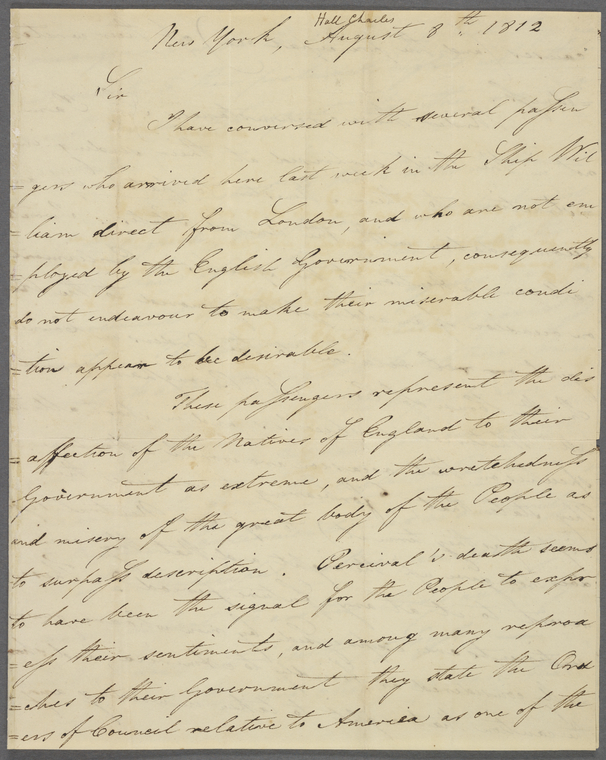 Hall Charles
New York, August 8th. 1812
Sir
I have conversed with several passen
=gers who arrived here last week in the Ship Wil
=liam direct from London, and who are not em
=ployed by the English Government, consequently
do not endeavour to make their miserable condi
=tion appear to be desirable.
These passengers represent the dis
=affection of the Natives of England to their
Government as extreme, and the wretchedness
and misery of the great body of the People as
to surpass description. Percival's death seems
to have been the signal for the People to expr
=ess their sentiments, and among many reproa
=ches to their Government they state the Ord
=ers of Council relative to America as one of the